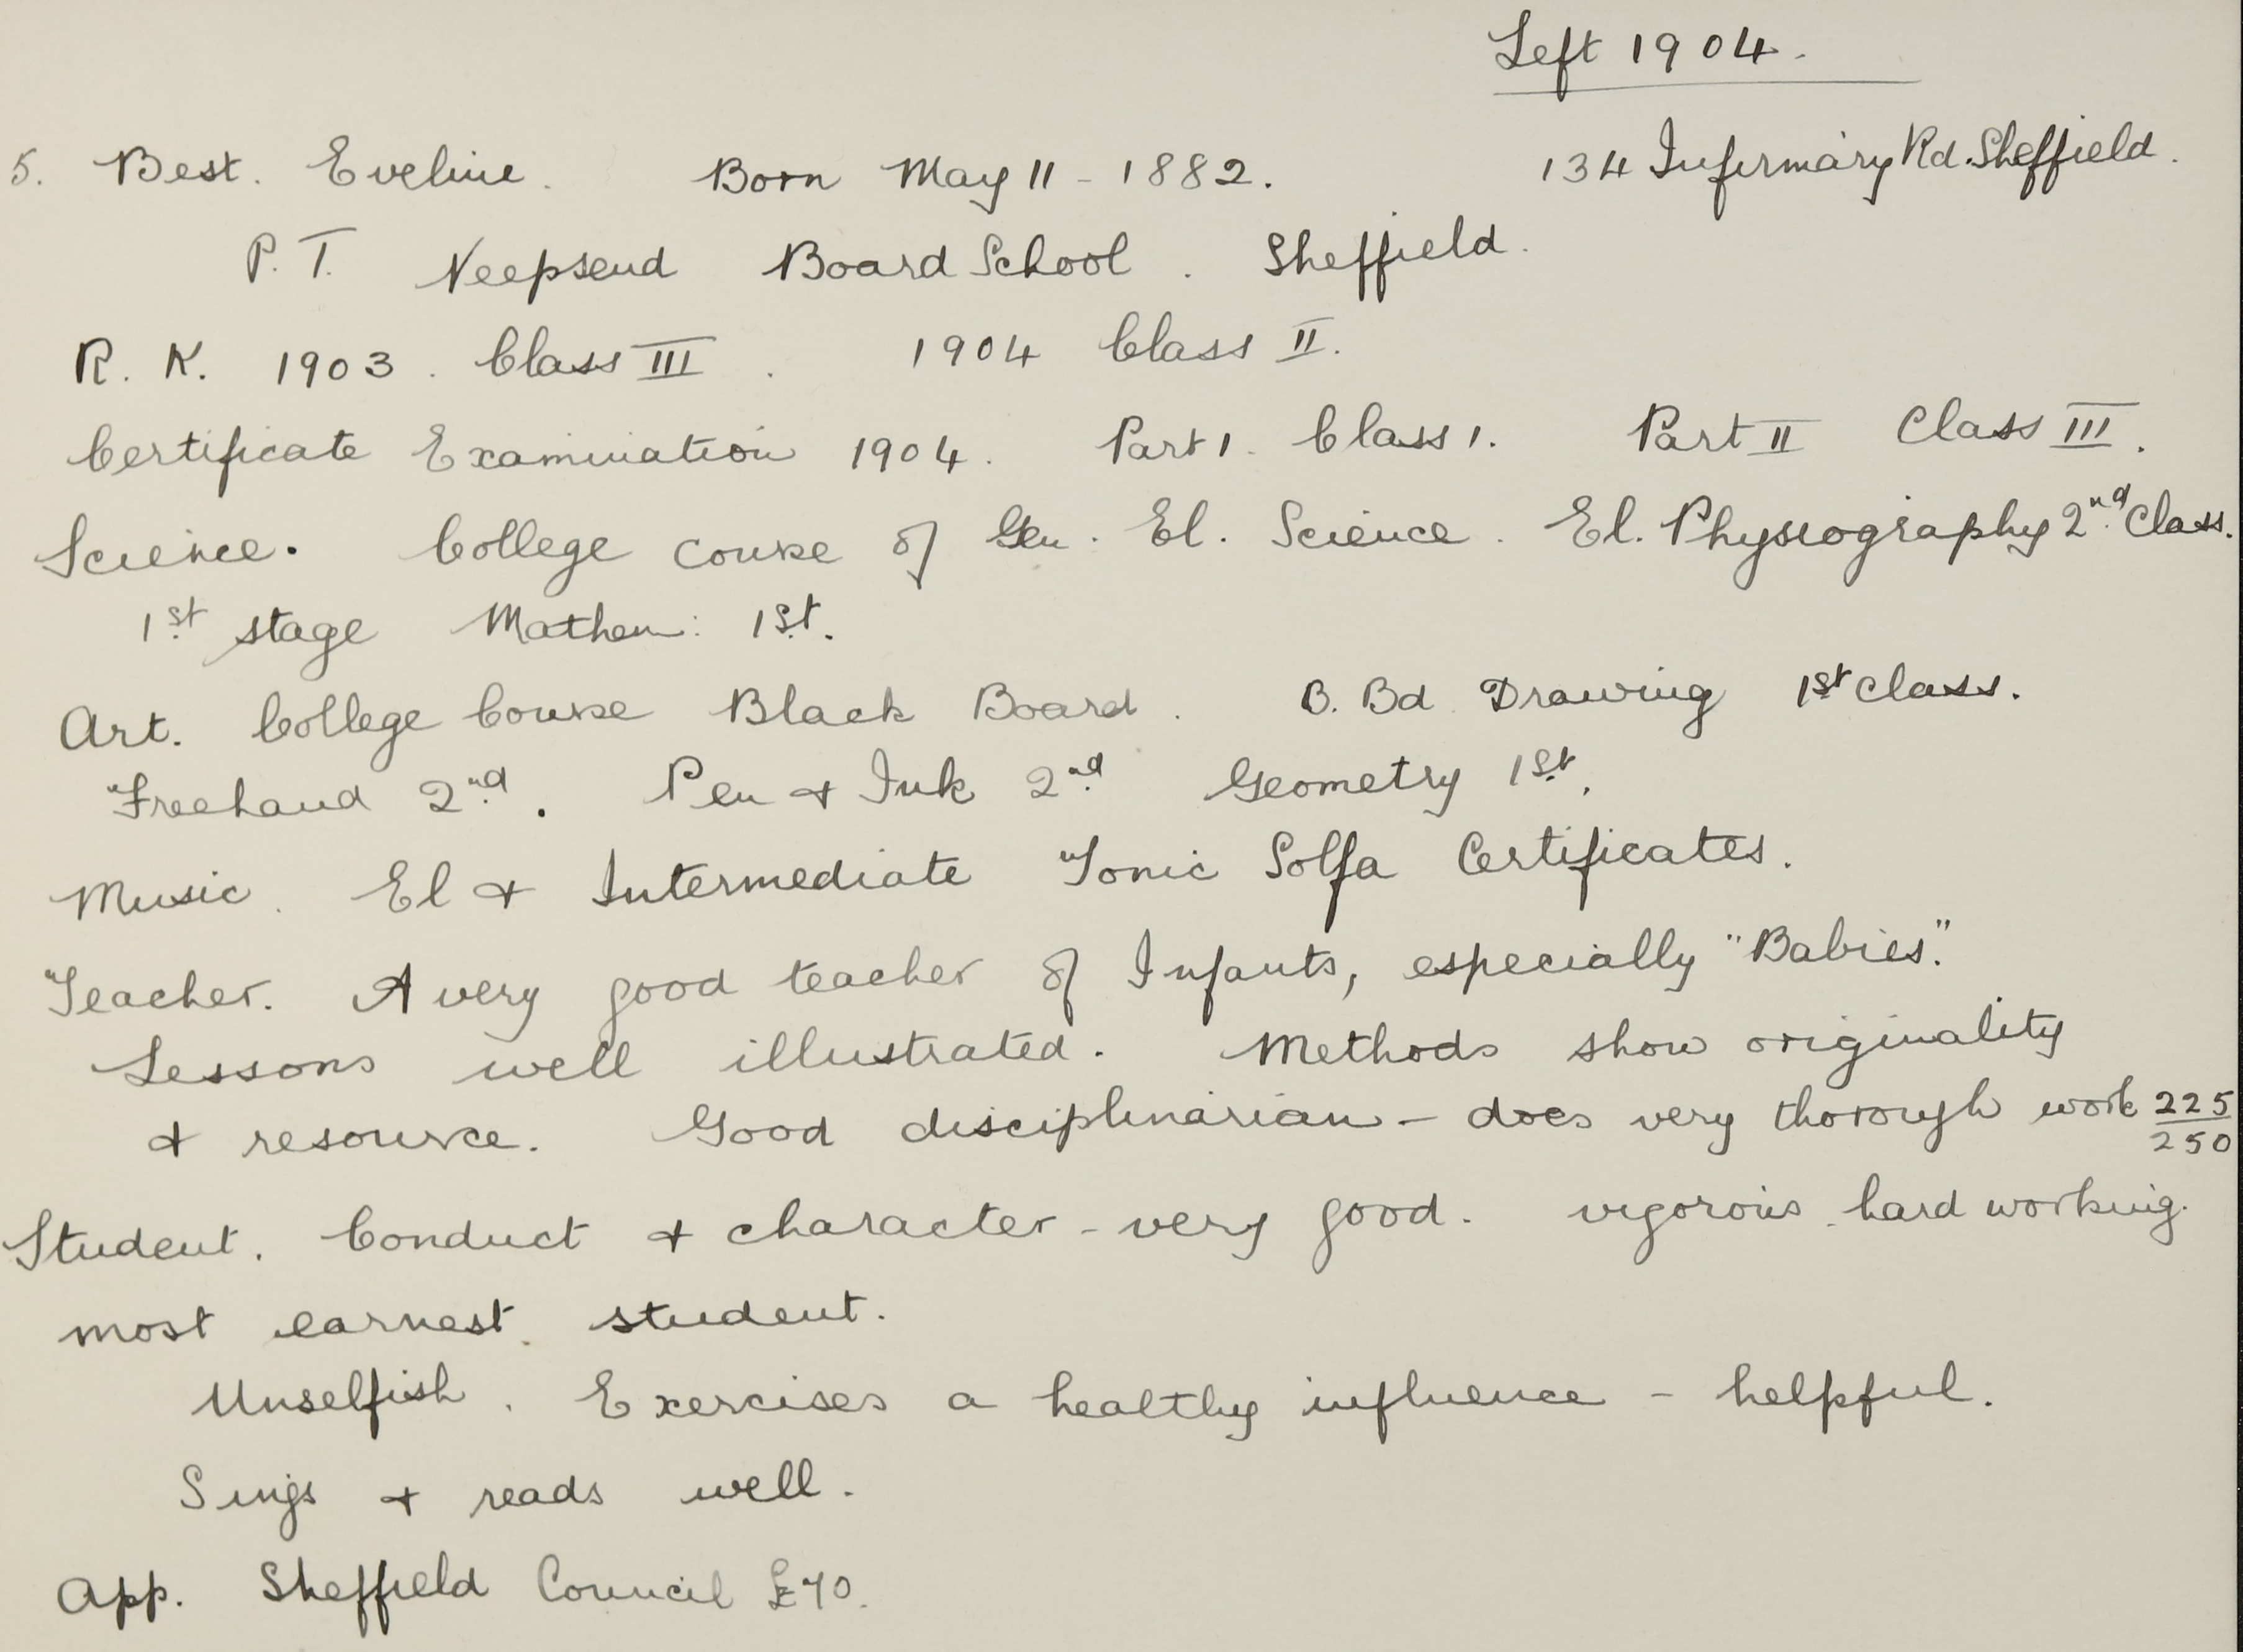 Left 1904.
5. Best. Eveline. Born May 11 - 1882. 134 Infirmary Rd. Sheffield.
P.T. Neepsend Board School. Sheffield.
R. K. 1903. Class III. 1904 Class II.
Certificate Examination 1904. Part 1. Class 1. Part II Class III.
Science. College course of Gen. El. Science. El. Physiography 2nd Class.
1st stage Mathem: 1st.
Art. College Course Black Board. B. Bd Drawing 1st class.
Freehand 2nd. Pen & Ink 2nd Geometry 1st.
Music. El & Intermediate Tonic Solfa Certificates.
Teacher. A very good teacher of Infants, especially "Babies."
Lessons well illustrated. Methods show originality
& resource. Good disciplinarian - does very thorough work 225/250
Student. Conduct & character - very good. vigorous. hard working.
most earnest. student.
Unselfish. Exercises a healthy influence - helpful.
Sings & reads well.
App. Sheffield Council £70.